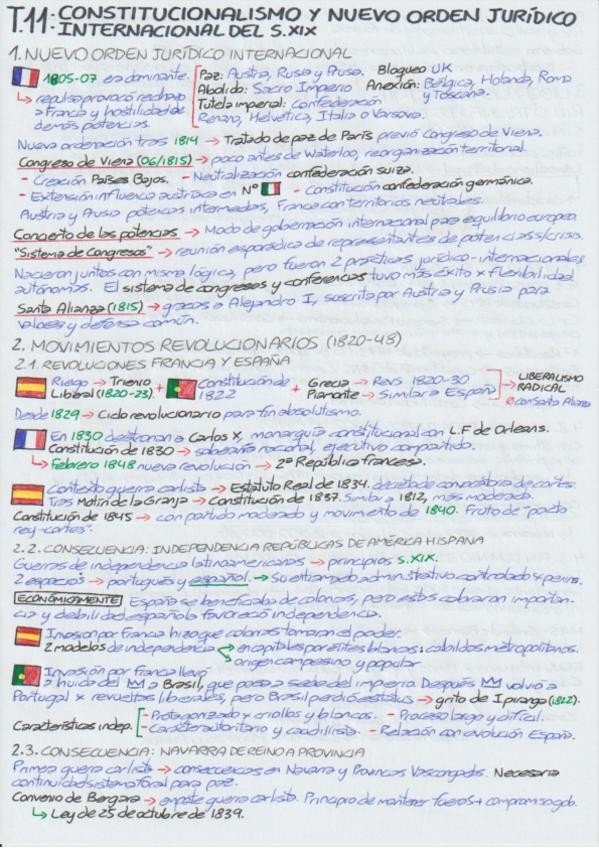 T.11: CONSTITUCIONALISMO Y NUEVO ORDEN JURÍDICO
INTERNACIONAL DEL S.XIX
1. NUEVO ORDEN JURÍDICO INTERNACIONAL
1805-07 era dominante.
↳ repulsa provocó rechazo
a Francia y hostilidad de
demás potencias.
Paz: Austria, Rusia y Prusia.
Abolido: Sacro Imperio
Tutela imperial: Confederación
Renano, Helvetica, Italia o Varsovia.
Bloqueo UK
Anexión: Bélgica, Holanda, Roma
y Toscana.
Nueva ordenación tras 1814 → Tratado de paz de París previó Congreso de Viena.
Congreso de Viena (06/1815) → poco antes de Waterloo, reorganización territorial.
- Creación Países Bajos. - Neutralización confederación suiza.
- Extensión influencia austriaca en Nº - Constitución confederación germánica.
Austria y Prusia potencias intermedias, Francia con territorios neutrales.
Concierto de las potencias → Modo de gobernación internacional para equilibrio europeo
"Sistema de Congresos" → reunión esporádica de representantes de potencias s/crisis.
Nacieron juntos con misma lógica, pero fueron 2 prácticas jurídico-internacionales
autónomas. El sistema de congresos y conferencias tuvo más éxito x flexibilidad.
Santa Alianza (1815) → gracias a Alejandro I, suscrita por Austria y Prusia para
valores y defensa común.
2. MOVIMIENTOS REVOLUCIONARIOS (1820-48)
2.1. REVOLUCIONES FRANCIA Y ESPAÑA
Riego → Trienio
Liberal (1820-23). + Constitución de
1822 + Grecia → Revs 1820-30
Piamonte → Similar a España → LIBERALISMO
RADICAL
contra Sta Alianza
Desde 1829 → Ciclo revolucionario para fin absolutismo.
En 1830 destronan a Carlos X, monarquía constitucional con L.F de Orleans.
Constitución de 1830 → soberanía nacional, ejecutivo compartido.
↳ Febrero 1848 nueva revolución → 2ª República francesa.
Contexto guerra carlista → Estatuto Real de 1834. decreto de convocatoria de cortes.
Tras Motín de la Granja → Constitución de 1837. Similar a 1812, más moderada.
Constitución de 1845 → con partido moderado y movimiento de 1840. Fruto de "pacto
rey-cortes".
2.2. CONSECUENCIA: INDEPENDENCIA REPÚBLICAS DE AMÉRICA HISPANA
Guerras de independencia latinoamericanas → principios S.XIX.
2 espacios → portugués y español. → Su entramado administrativo controlado x penins.
ECONÓMICAMENTE España se beneficiaba de colonias, pero estas cobraron importan-
cia y debilidad española favoreció independencia.
Invasión por Francia hizo que colonias tomaran el poder.
2 modelos de independencia → en capitales por élites blancas: cabildos metropolitanos.
origen campesino y popular
Invasión por Francia llevó
a huida del a Brasil, que pasa a sede del imperio. Después volvió a
Portugal x revueltas liberales, pero Brasil perdió estatus → grito de Ipiranga (1822).
Características indep. - Protagonizado x criollos y blancos. - Proceso largo y difícil.
- Carácter autoritario y caudillista. - Relación con evolución España.
2.3. CONSECUENCIA: NAVARRA DE REINO A PROVINCIA
Primera guerra carlista → consecuencias en Navarra y Provincias Vascongadas. Necesaria
continuidad sistema foral para paz.
Convenio de Bergara → en pos de guerra carlista. Principio de mantener fueros + compromiso gob.
↳ Ley de 25 de octubre de 1839.